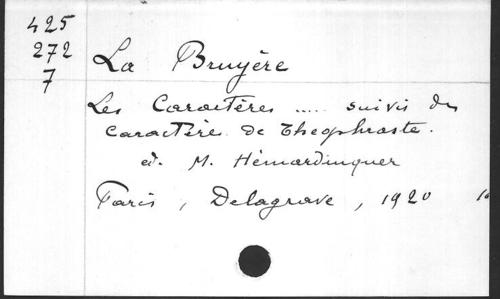 425
272
7
La Bruyère
Les Caractères ..... suivis des
caractères de Theophraste.
ed. M. Hémardinquer
Paris, Delagrave, 1920